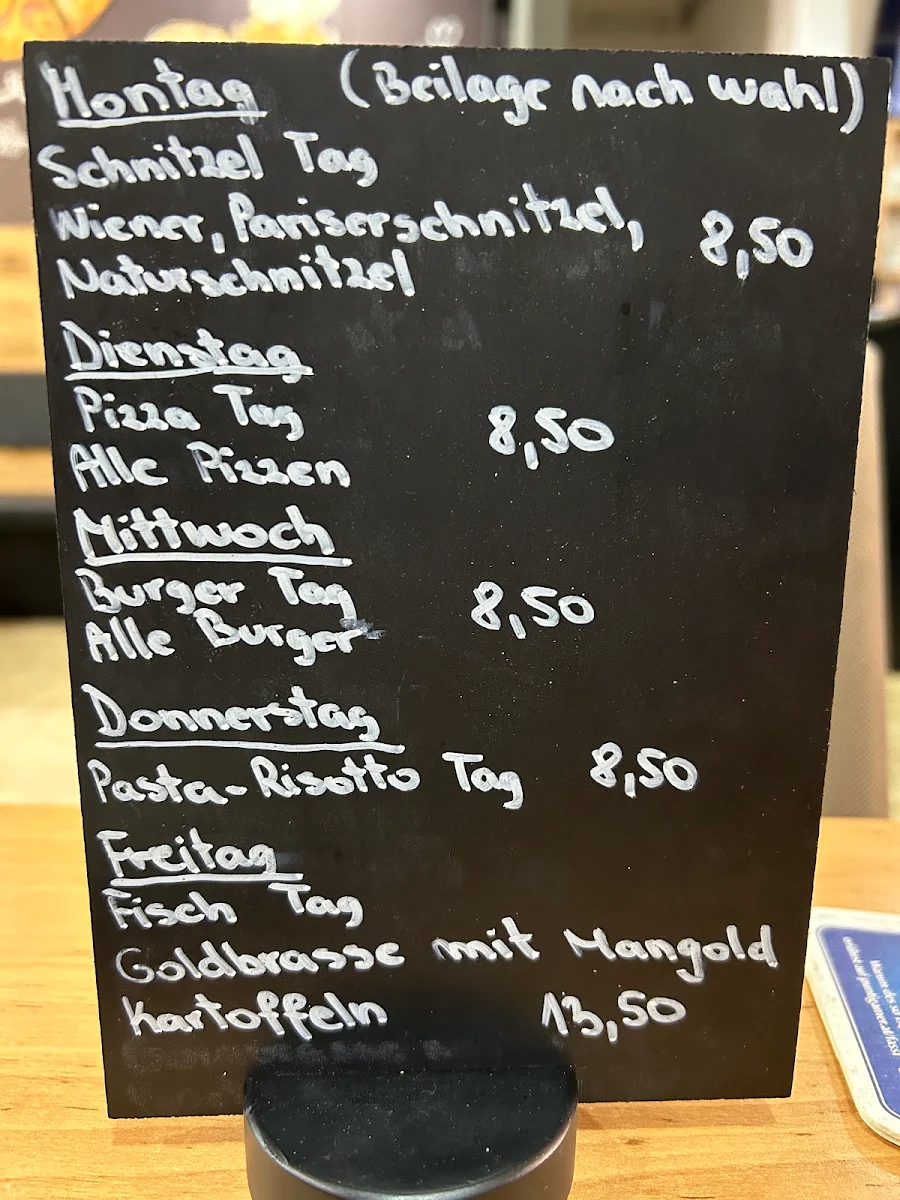 Montag (Beilage nach wahl)
Schnitzel Tag
Wiener, Pariserschnitzel,
Naturschnitzel 8,50
Dienstag
Pizza Tag 8,50
Alle Pizzen
Mittwoch
Burger Tag 8,50
Alle Burger
Donnerstag
Pasta-Risotto Tag 8,50
Freitag
Fisch Tag
Goldbrasse mit Mangold
Kartoffeln 13,50